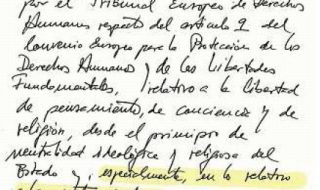 por el Tribunal Europeo de Derechos
Humanos respecto del artículo 9 del
Convenio Europeo para la Protección de los
Derechos Humanos y de las Libertades
Fundamentales, relativo a la libertad
de pensamiento, de conciencia y de
religión, desde el principio de
neutralidad ideológica y religiosa del
Estado y, especialmente, en lo relativo